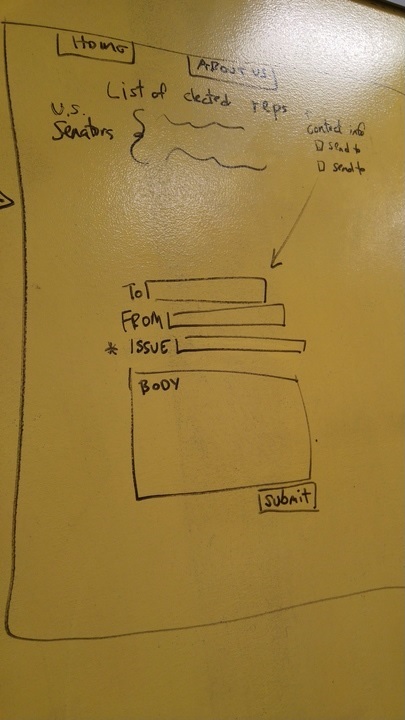 Home
ABOUT US
List of elected reps.
U.S.
Senators
contact info
send to
send to
To
FROM
* ISSUE
BODY
Submit